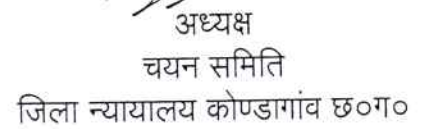 अध्यक्ष
चयन समिति
जिला न्यायालय कोण्डागांव छ०ग०